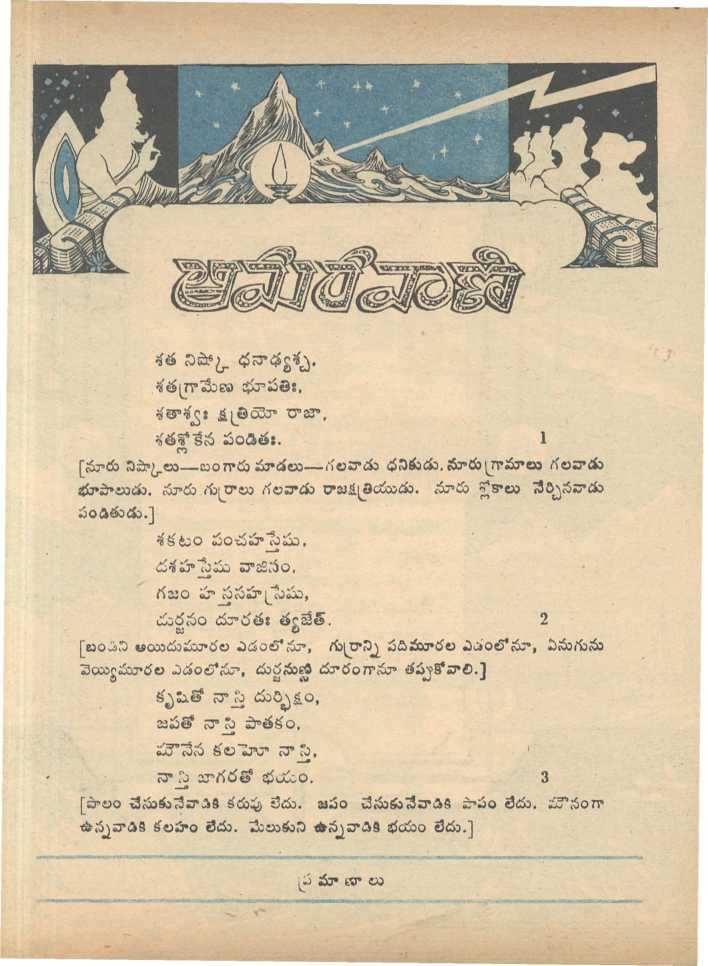 అమరవాణి
శత నిష్కో ధనాఢ్యశ్చ,
శతగ్రామేణ భూపతిః,
శతాశ్వః క్షత్రియో రాజా,
శతశ్లోకేన పండితః. 1
[నూరు నిష్కాలు—బంగారు మాడలు—గలవాడు ధనికుడు. నూరు గ్రామాలు గలవాడు
భూపాలుడు. నూరు గుర్రాలు గలవాడు రాజక్షత్రియుడు. నూరు శ్లోకాలు నేర్చినవాడు
పండితుడు.]
శకటం పంచహస్తేషు,
దశహస్తేషు వాజినం,
గజం హస్తసహస్రేషు,
దుర్జనం దూరతః త్యజేత్. 2
[బండిని అయిదుమూరల ఎడంలోనూ, గుర్రాన్ని పదిమూరల ఎడంలోనూ, ఏనుగును
వెయ్యిమూరల ఎడంలోనూ, దుర్జనుణ్ణి దూరంగానూ తప్పుకోవాలి.]
కృషితో నాస్తి దుర్భిక్షం,
జపతో నాస్తి పాతకం,
మౌనేన కలహో నాస్తి,
నాస్తి జాగరతో భయం. 3
[పొలం చేసుకునేవాడికి కరువు లేదు. జపం చేసుకునేవాడికి పాపం లేదు. మౌనంగా
ఉన్నవాడికి కలహం లేదు. మేలుకుని ఉన్నవాడికి భయం లేదు.]
ప్రమాణాలు